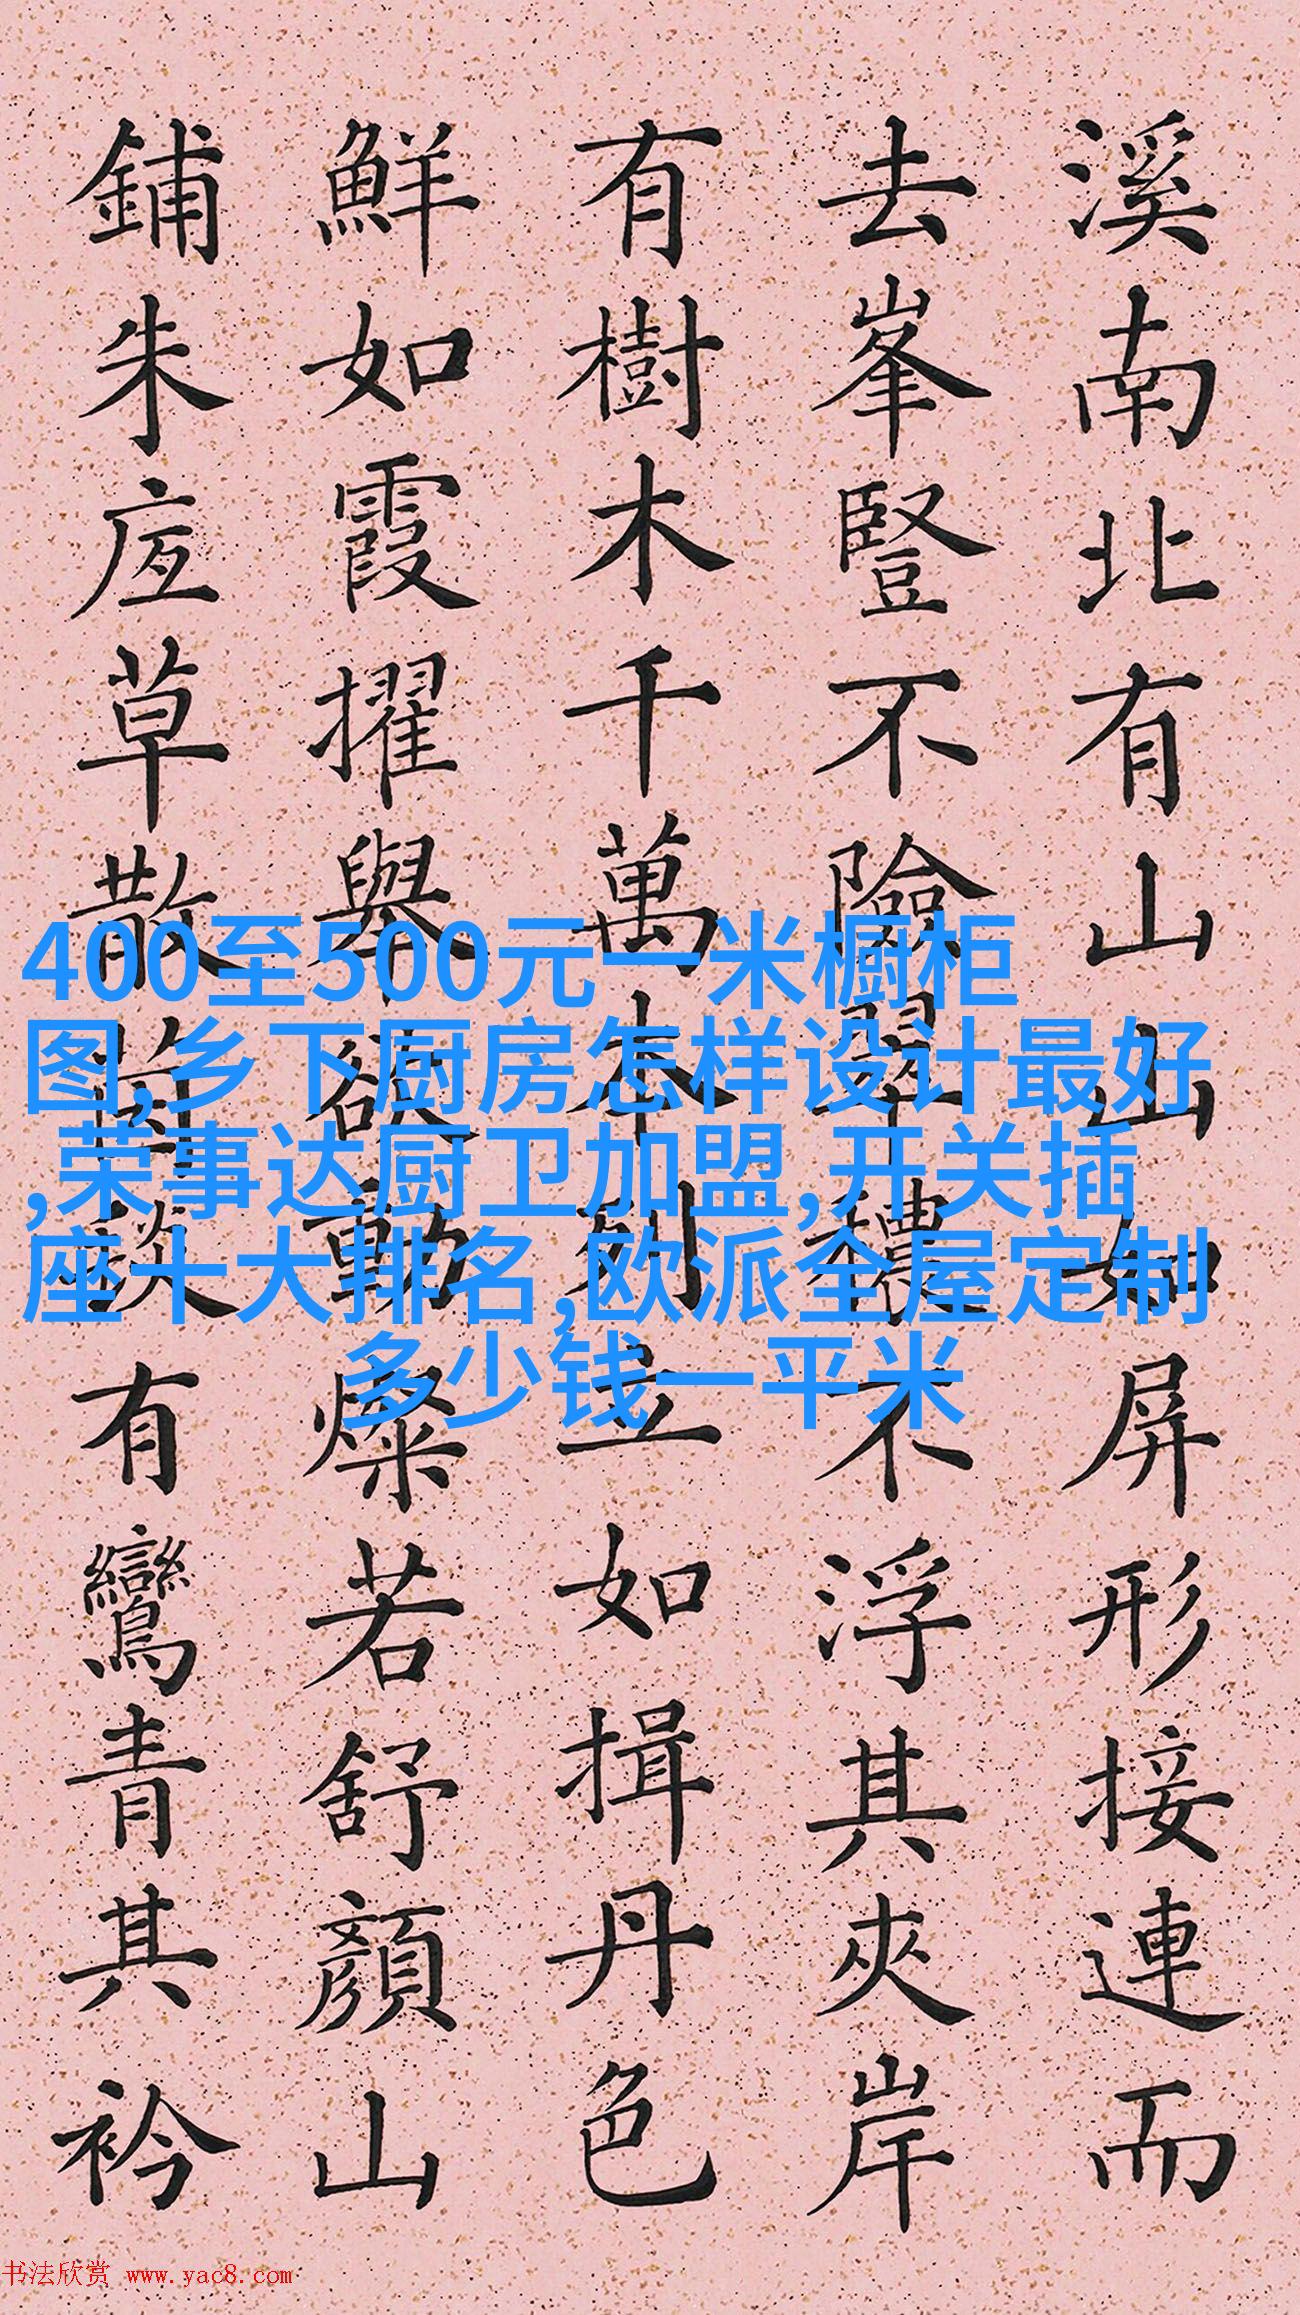 溪南北有山山如屏形接連而
去峯豎不險翠穠不浮其夾岸
有樹木千萬本列立如揖丹色
鮮如霞擢舉欲動燦若舒顏山
鋪朱底草散茵毯有鸞青其衿
400至500元一米橱柜
图,乡下厨房怎样设计最好
,荣事达厨卫加盟,开关插
座十大排名,欧派全屋定制
多少钱一平米
书法欣赏 www.yac8.com